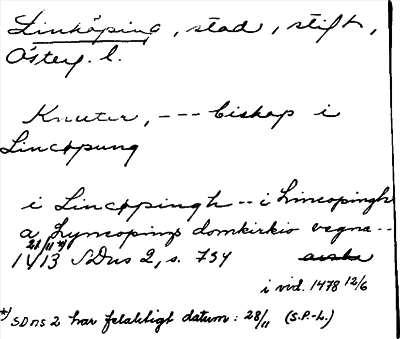 Linköping, stad, stift,
Österg. l.
Knuter, --- biskop i
Lincøpung
i Lincøpingh -- i Lincopingh
a Lyncopings domkirkio vegna --
21/11 *)
1413 SDns 2, s. 754
i vid. 1478 12/6
*) SDns 2 har felaktigt datum: 28/11 (S.P-L.)